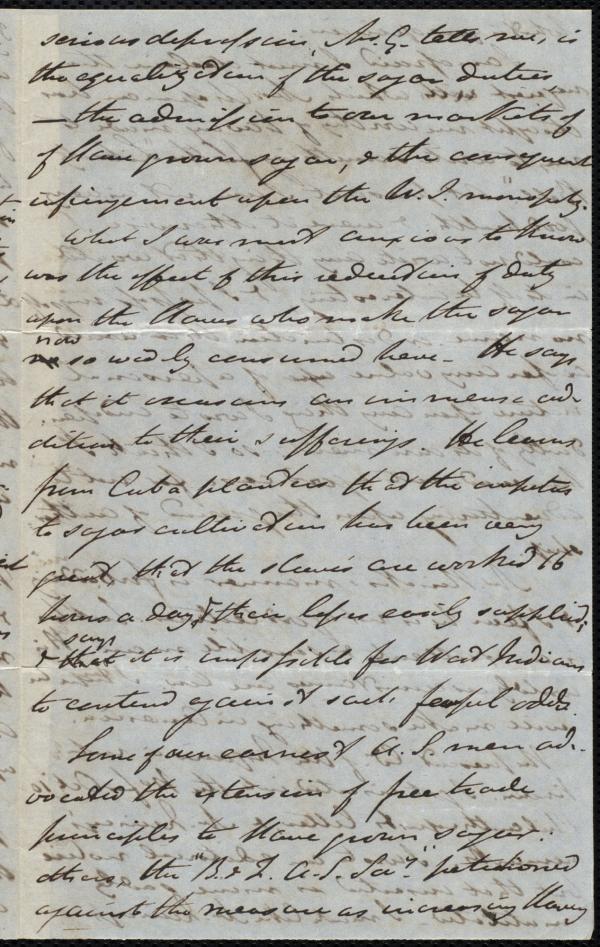 serious depression, Mr. G. tells me, is
the equalization of the sugar duties,
— the admission to our markets of
of slave grown sugar, & the consequent
infringement upon the W. I. monopoly.
What I was most anxious to know
was the effect of this reduction of duty
upon the slaves who make the sugar
now
so widely consumed here – He says
that it occasions an immense ad-
dition to their sufferings. He learns
from Cuba planters that the impetus
to sugar cultivation has been very
great that the slaves are worked 16
hours a day, & their losses easily supplied;
says
& that it is impossible for West Indians
to contend against such fearful odds.
Some of our earnest A. S. men ad-
vocated the extension of free trade
principles to slave grown sugar:
others, the "B. & F. A.-S. Soc." petitioned
against the measure as increasing slavery